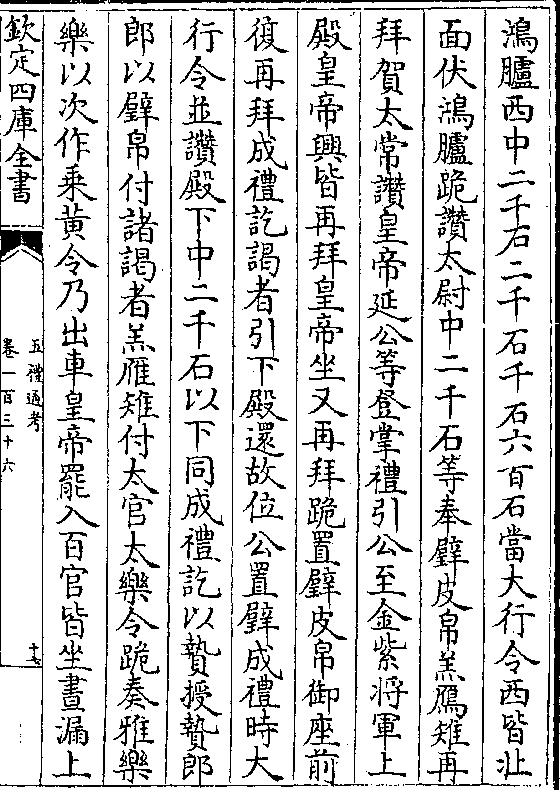 鴻臚西中二千石二千石千石六百石當大行令西皆北
面伏鴻臚跪讚太尉中二千石等奉璧皮帛羔鴈雉再
拜賀太常讚皇帝延公等登掌禮引公至金紫將軍上
殿皇帝興皆再拜皇帝坐又再拜跪置璧皮帛御座前
復再拜成禮訖謁者引下殿還故位公置璧成禮時大
行令並讚殿下中二千石以下同成禮訖以贄授贄郎
郎以璧帛付諸謁者羔雁雉付太官太樂令跪奏雅樂
樂以次作乘黃令乃出車皇帝罷入百官皆坐晝漏上
欽定四庫全書
五禮通考
卷一百三十六
十七